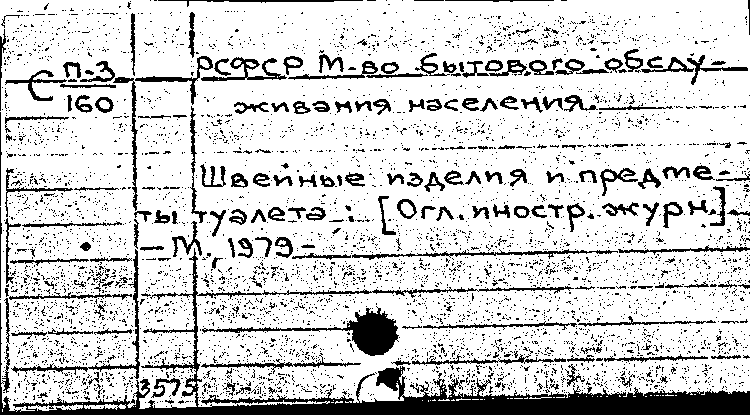 С П-3 РСФСР М-во бытового обслу-
160 живания населения.
Швейные изделия и предме-
ты туалета : [Огл. иностр. журн.].
— М., 1979 -
3575